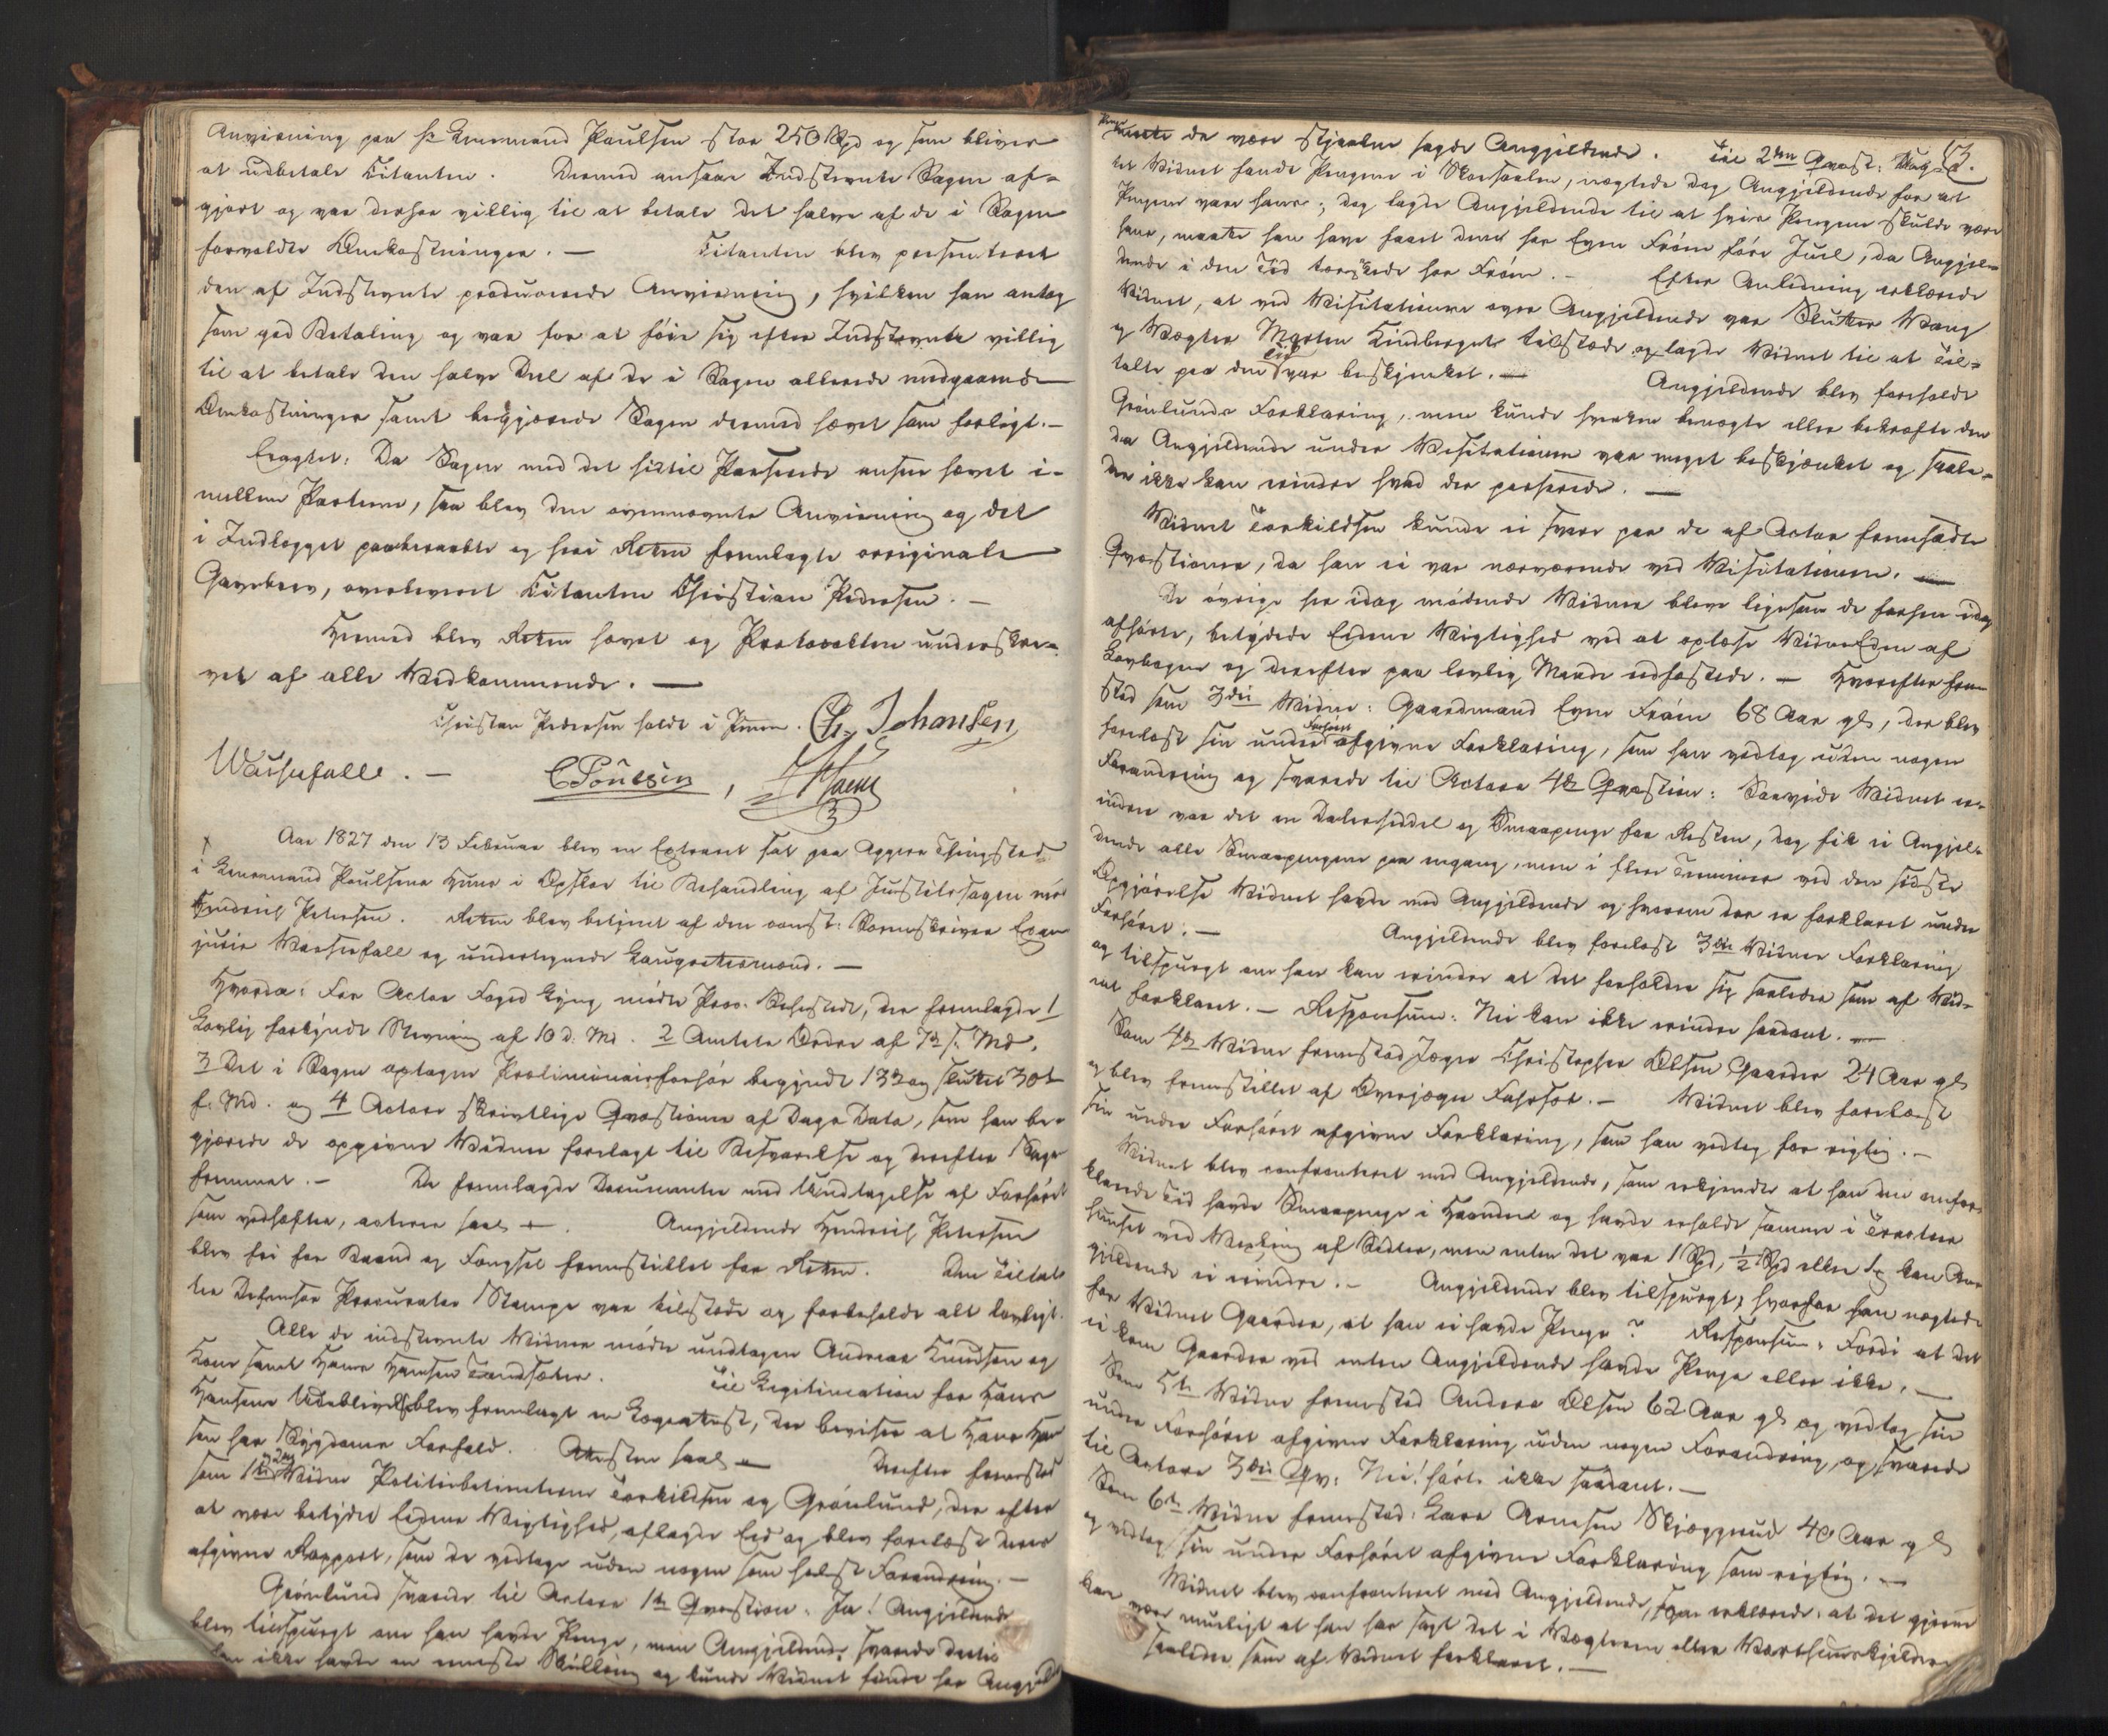 Anviisning paa Hr Lensmand Paulsen stor 250 Spd og som bliver
at udbetale Citanten. Dermed ansaae Indstevnte Sagen af-
gjort og var derfor villig til at betale det halve af de i Sagen
forvoldte Omkostninger. — Citanten blev presenteret
den af Indstevnte producerede Anviisning, hvilken han antog
som god Betaling og var for at føie sig efter Indstevnte villig
til at betale den halve Deel af de i Sagen allerede medgaaende
Omkostninger samt begjærede Sagen dermed hævet som forligt. —
Eragtet: Da Sagen med det hidtil Passerede ansees hævet i-
mellem Parterne, saa blev den ovennævnte Anviisning og det
i Indlægget paaberaabte og her i Retten fremlagte originale
Gavebrev, overleveret Citanten Christian Pedersen. —
Hermed blev Retten hævet og Protocollen underskre-
vet af alle Vedkommende. —
Christen Pedersen holdt i Pennen. Ch. Johansen
Wasenfall. — C Poulsen,
Aar 1827 den 13 Februar blev en Extraret sat paa Aggers Thingsted
i Lensmand Poulsens Huus i Opslo til Behandling af Justitssagen mod
Hendrich Petersen. Retten blev betjent af den const: Sorenskriver Exam
juris Wasenfall og undertegnede Laugrettesmænd. —
Hvorda: For Actor Foged Lyng mødte Proc. Sehested, der fremlagde 1
Lovlig forkyndt Stevning af 10 d. Md. 2 Amtets Ordre af 7de f. Md.
3 Det i Sagen optagne Præliminairforhør begyndt 13de og sluttet 30te
f. Md. og 4 Actors skriftlige Qvæstioner af Dags Dato, som han be-
gjærede de opgivne Vidner forelagt til Besvarelse og derefter Sagen
fremmet. — De fremlagde Documenter med Undtagelse af Forhøret
som vedhæftes, acteres saal. Angjeldende Hendrich Petersen
blev fri for Baand og Fængsel fremstillet for Retten. Den Tiltal-
tes Defensor Procurator Stampe var tilstede og forbeholdt alt lovligt.
Alle de indstevnte Vidner mødte undtagen Andreas Knudsen og
Kone samt Hans Hansen Landsæter. Til Legitimation for Hans
Hansens Udeblivelse blev fremlagt en Lægeattest, der beviser at Hans Han
sen har Sygdoms Forfald. Attesten saal. Derefter fremstod
som 1ste og 2det Vidne Politiebetientene Torkildsen og Grønlund, der efter
at være betydet Eedens Vigtighed, aflagde Eed og blev forelæst deres
afgivne Rapport, som de vedtoge uden nogen som helst Forandring. —
Grønlund svarede til Actors 1ste Qvæstion: Ja! Angjeldende
blev tilspurgt om han havde Penge, men Angjeldende svarede dertil
han ikke havde en eneste Skilling og kunde Vidnet finde hos Angjeld
Penge
maatte de være stjaalne sagde Angjeldende. Til 2den Qvæst:
53.
det Vidnet fandt Pengene i Skosaalen, nægtede dog Angjeldende for at
Pengene vare hans; dog lagde Angjeldende til at hvis Pengene skulde være
hans, maatte han have faaet dem hos Even Frøen före Juul, da Angjel-
dende i den Tid tærskede hos Frøen. — Efter Anledning erklærede
Vidnet, at ved Visitationen over Angjeldende var Slutter Wang
og Vægter Morten Lindberget tilstede og lagde Vidnet til at Til-
talte paa den Tid var beskjenket. — Angjeldende blev foreholdt
Grønlunds Forklaring, men kunde hverken benægte eller bekræfte den
da Angjeldende under Visitationen var meget beskjænket og saale-
des ikke kan erindre hvad der passerede. —
Vidnet Torkildsen kunde ei svare paa de af Actor fremsatte
Qvæstioner, da han ei var nærværende ved Visitationen. —
De øvrige her idag mødende Vidner bleve ligesom de forhen idag
afhørte, betydede Eedens Vigtighed ved at oplæse VidneEeden af
Lovbogen og derefter paa lovlig Maade edfæstede. — Hvorefter frem
stod som 3die Vidne: Gaardmand Even Frøen 68 Aar gl, der blev
forelæst sin under Forhøret afgivne Forklaring, som han vedtog uden nogen
Forandring og svarede til Actors 4de Qvæstion: Saavidt Vidnet er-
indrer var det en Dalerseddel og Smaapenge for Resten, dog fik ei Angjel-
dende alle Smaapengene paa engang, men i flere Terminer ved den sidste
Opgjørelse Vidnet havde med Angjeldende og hvorom der er forklaret under
Forhøret. — Angjeldende blev forelæst 3die Vidnes Forklaring
og tilspurgt om han kan erindre at det forholder sig saaledes som af Vid-
net forklaret. — Responsum: Nei kan ikke erindre saadant. —
Som 4de Vidne fremstod Jæger Christopher Olsen Gaarder 24 Aar gl
og blev fremstillet af Overjæger Fuhrsæt. — Vidnet blev forelæst
sin under Forhøret afgivne Forklaring, som han vedtog for rigtig. —
Vidnet blev confronteret med Angjeldende, som erkjendte at han den omfor-
klarede Tid havde Smaapenge i Haanden og havde erholdt samme i Tracteur
huuset ved Vexling af Sedler, men enten det var 1 Spd, ½ Spd eller kan An-
gjeldende ei erindre. — Angjeldende blev tilspurgt, hvorfor han nægtede
for Vidnet Gaarder, at han ei havde Penge? Responsum: Fordi at det
ei kom Gaarder ved enten Angjeldende havde Penge eller ikke. —
Som 5te Vidne fremstod Anders Olsen 62 Aar gl og vedtog sin
under Forhøret afgivne Forklaring uden nogen Forandring, og svarede
til Actors 3die Qv: Nei! hørte ikke saadant. —
Som 6te Vidne fremstod: Lars Arnesen Skjæggerud 40 Aar gl
og vedtog sin under Forhøret afgivne Forklaring som rigtig. —
Vidnet blev confronteret med Angjeldende, som erklærede: at det gjerne
kan være mueligt at han har sagt det i Vægteren eller Værtshuuskjelderen
saaledes som af Vidnet forklaret. —